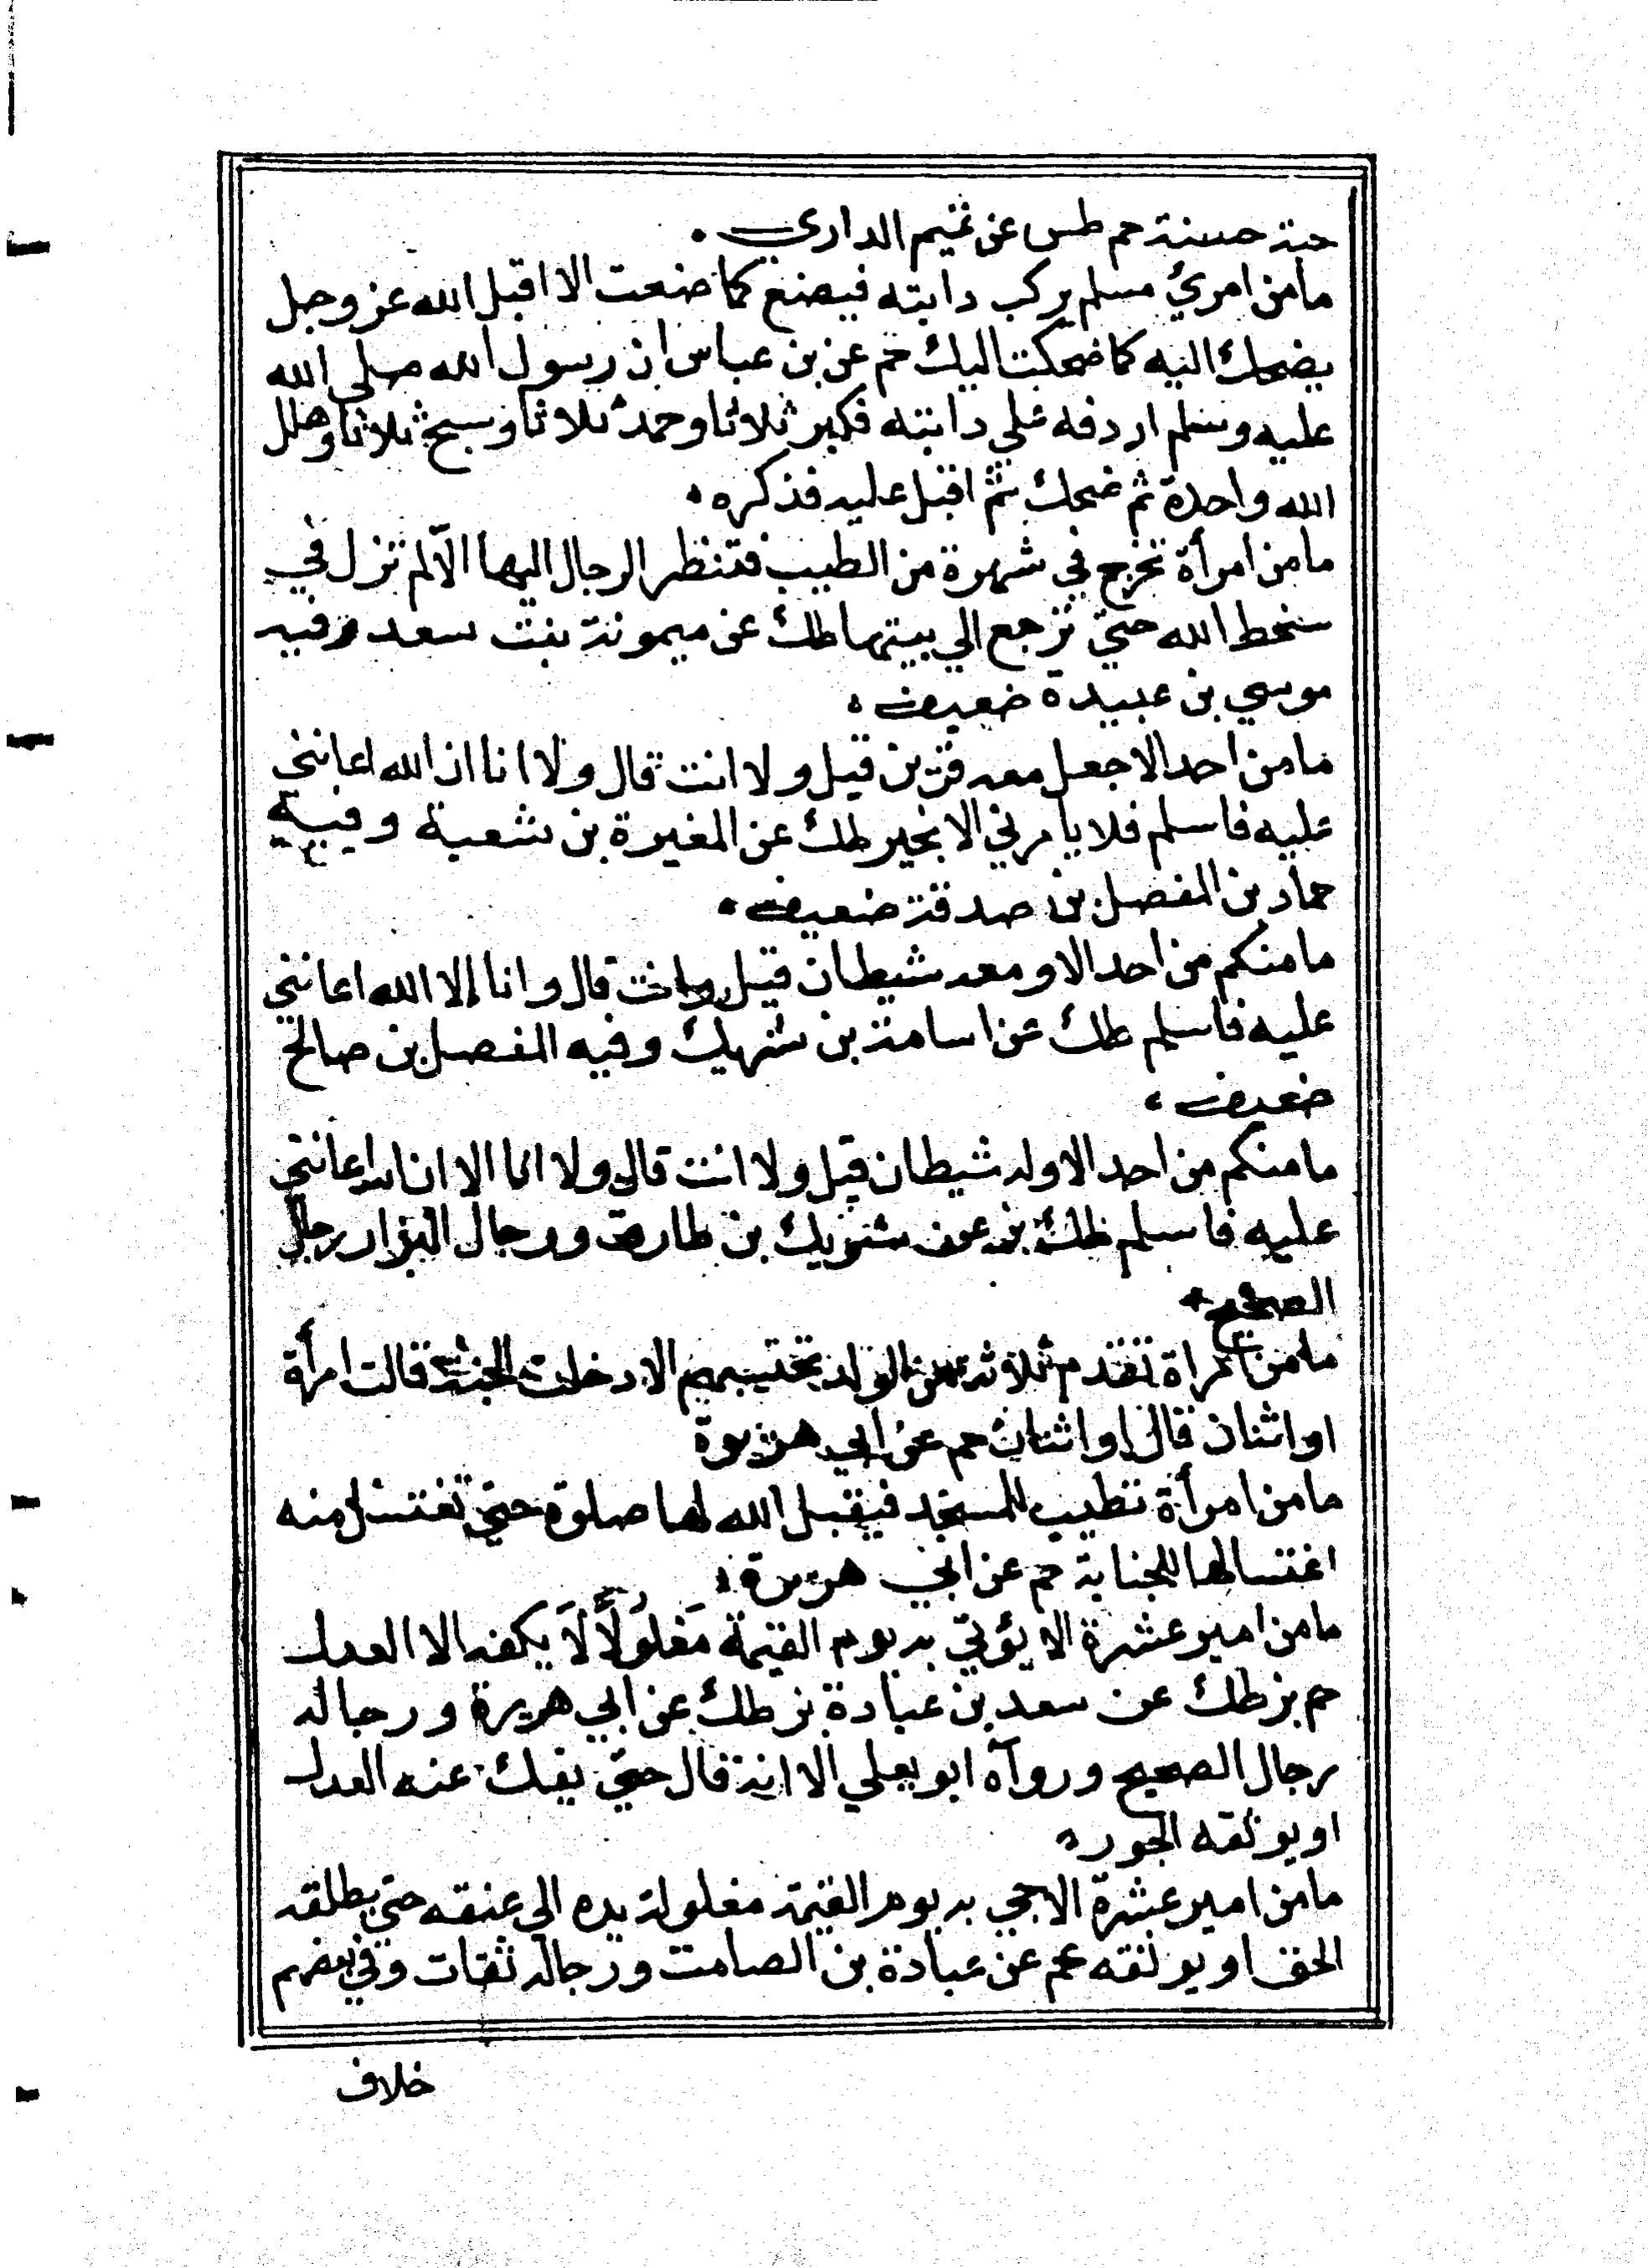 حبة حسنة حم طس عن تميم الداري .
مامن امرئ مسلم يركب دابته فيصنع كما ضنعت الا اقبل الله عز وجل
يضحك اليه كما ضحكت اليك حم عن بن عباس ان رسول الله صلى الله
عليه وسلم اردفه علي دابته فكبر ثلاثا وحمد ثلاثا وسبح ثلاثا وهلل
الله واحدة ثم ضحك ثم اقبل عليه فذكره ،
مامن امرأة تخرج في شهرة من الطيب فتنظر الرجال اليها الا لم تزل في
سخط الله حتي ترجع الي بيتها طك عن ميمونة بنت سعد وفيه
موسي بن عبيدة ضعيف ،
مامن احد الا جعل معه قرين قيل ولا انت قال ولا انا ان الله اعانني
عليه فاسلم فلا يامرني الا بخير طك عن المغيرة بن شعبة وفيه
حماد بن المفضل بن صدقة ضعيف ،
مامنكم من احد الا ومعه شيطان قيل وانت قال وانا إلا الله اعانني
عليه فاسلم طك عن اسامة بن شريك وفيه المفصل بن صالح
ضعيف ،
مامنكم من احد الا وله شيطان قيل ولا انت قال ولا انا الا ان الله اعانني
عليه فاسلم طك بز عن شريك بن طارق ورجال البزار رجال
الصحيح +
مامن امراة تقدم ثلاثة من الولد تحتسبهم الا دخلت الجنة قالت امرأة
او اثنان قال او اثنان حم عن ابي هريرة
مامن امرأة تطيب للمسجد فيقبل الله لها صلوة حتي تغتسل منه
اغتسالها للجنابة حم عن ابي هريرة ،
مامن امير عشرة الا يؤتي به يوم القيمة مَغلُولًا لَا يكفه الا العدل
حم بز طك عن سعد بن عبادة بز طك عن ابي هريرة ورجاله
رجال الصحيح ورواه ابو يعلي الا انه قال حتي يفك عنه العدل
او يوثقه الجور ،
مامن امير عشرة الا جي به يوم القيمة مغلولة يده الي عنقه حتي يطلقه
الحق او يوثقه عم عن عبادة بن الصامت ورجاله ثقات وفي بعضهم
خلاف